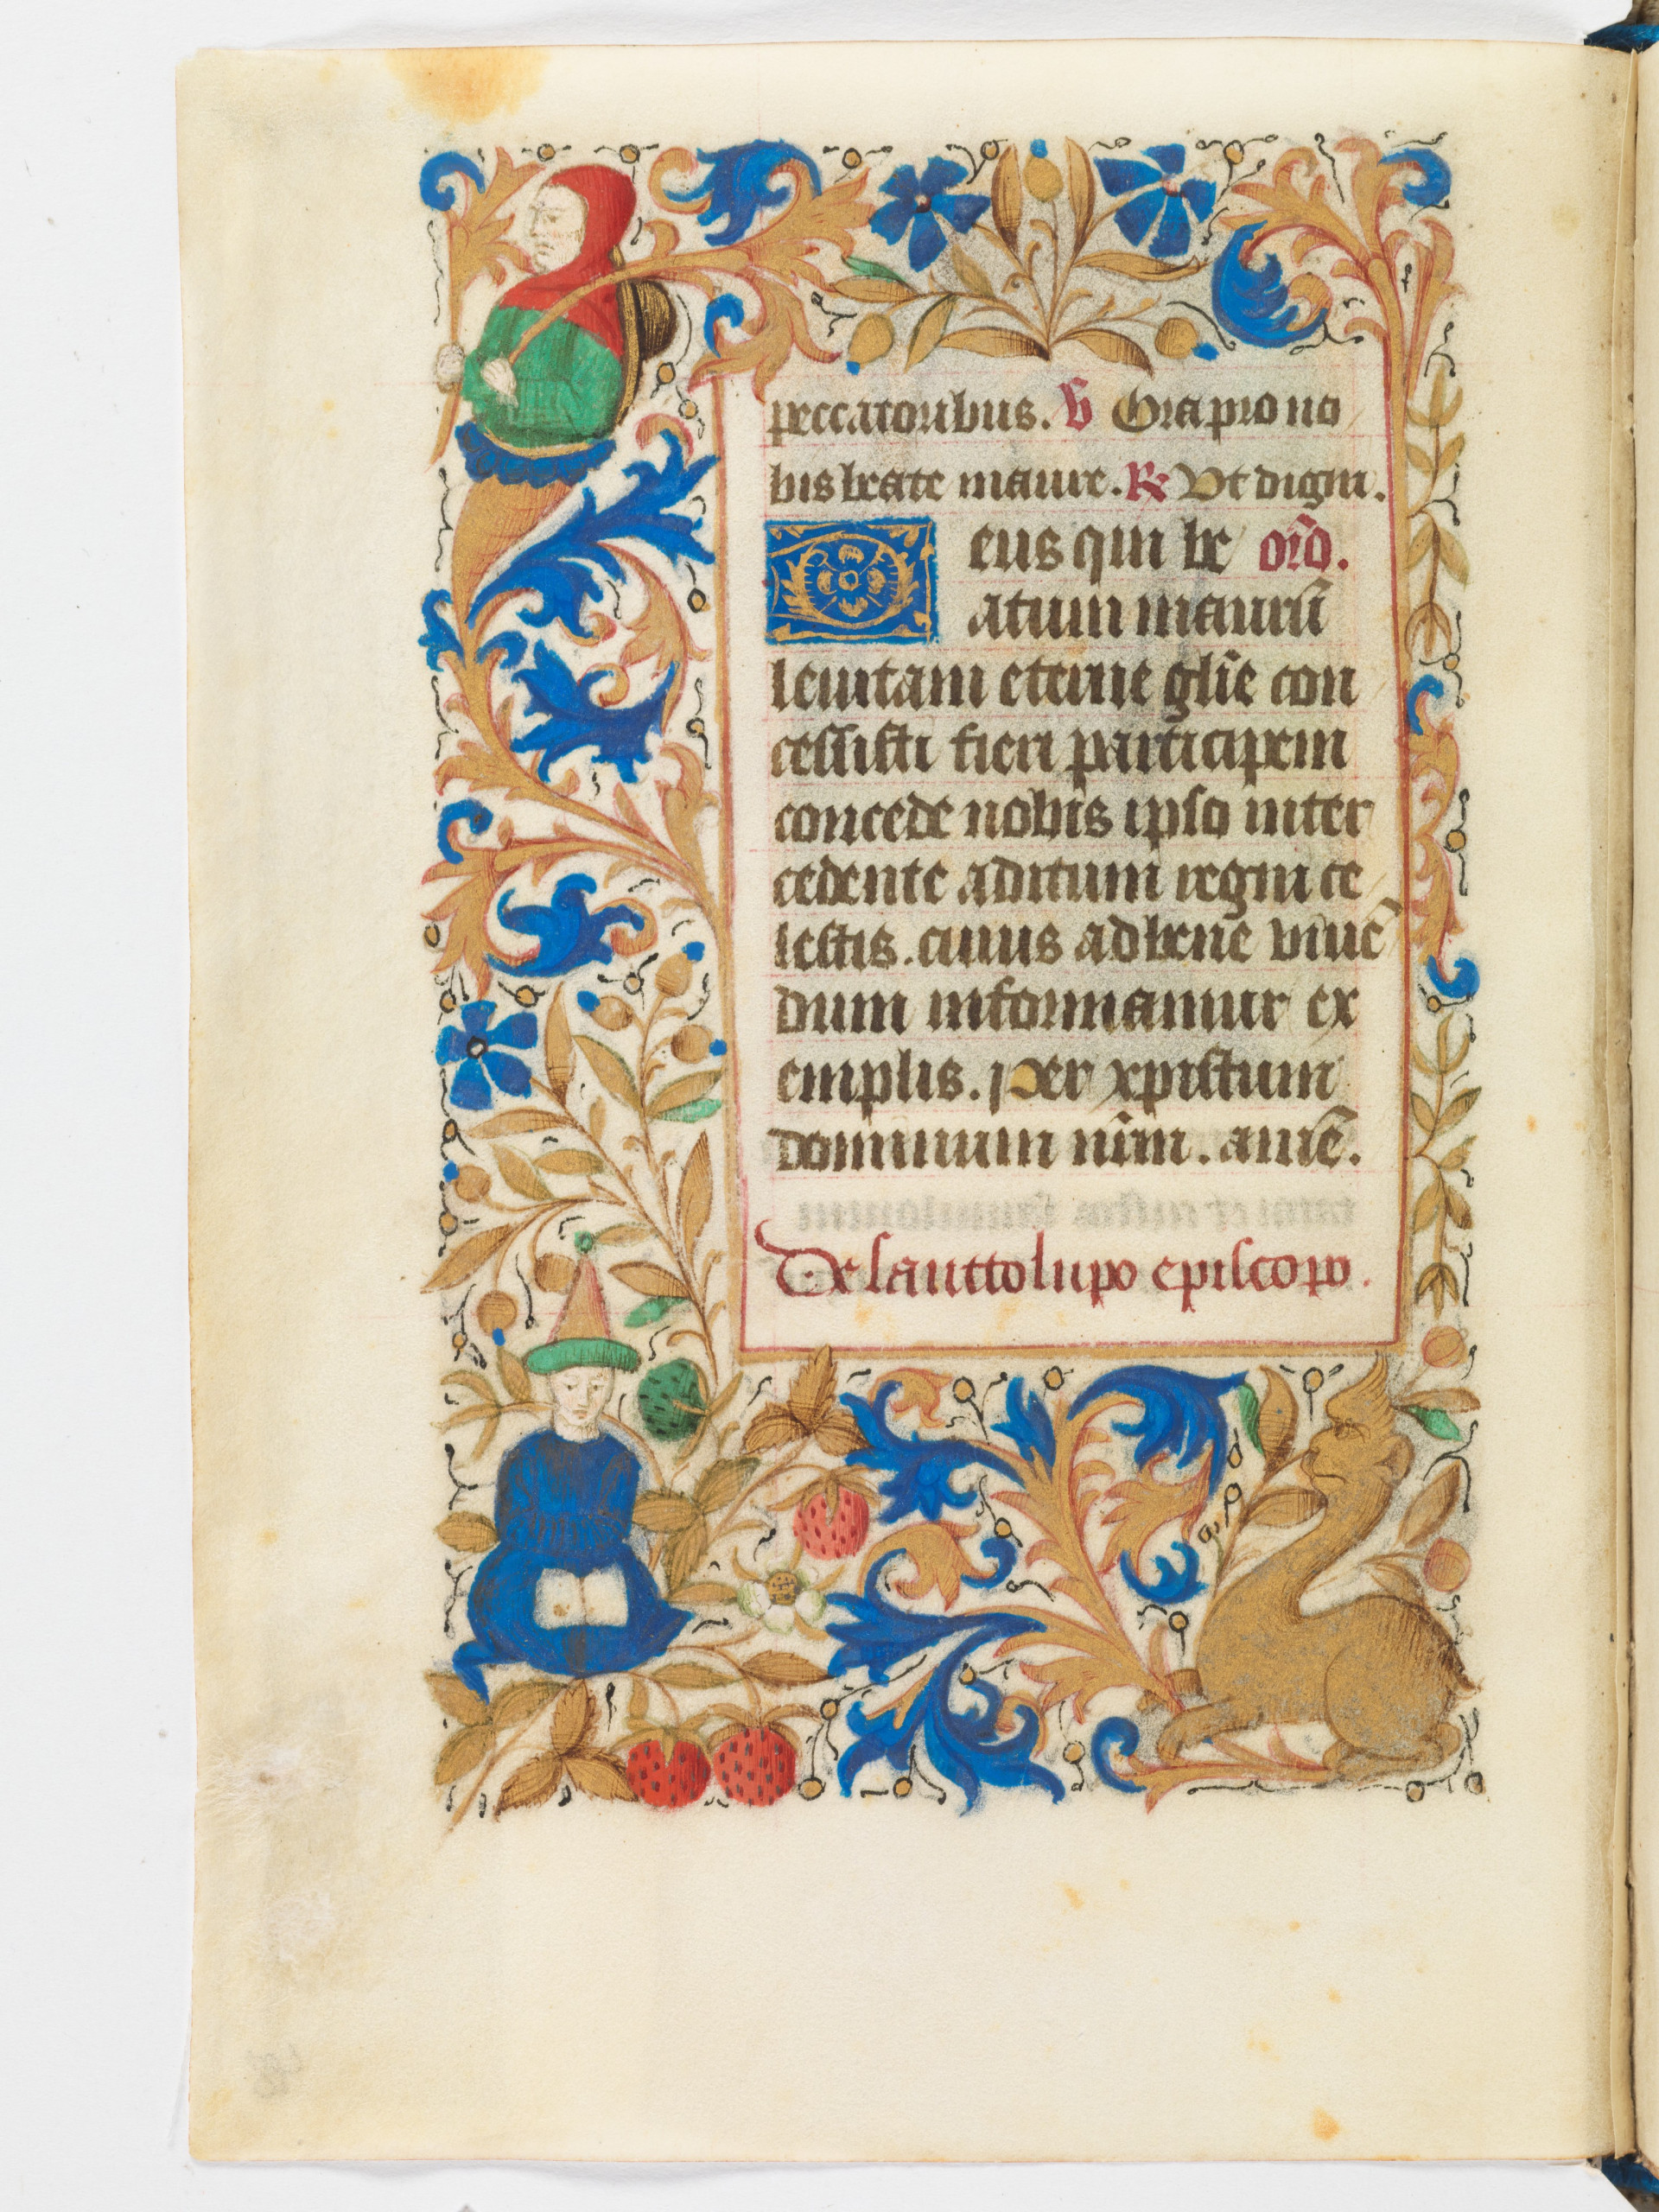 peccatoribus. ℣ Ora pro no
bis beate maure. ℟ Vt digni.
Deus qui be orō.
atum maurū
leuitam eterne glīe con
cessisti fieri participem
concede nobis ipso inter
cedente aditum regni ce
lestis. cuius ad bene viuē
dum informamur ex
emplis. Per xpistum
dominum nr̄m. amē.
De sancto lupo episcopo.